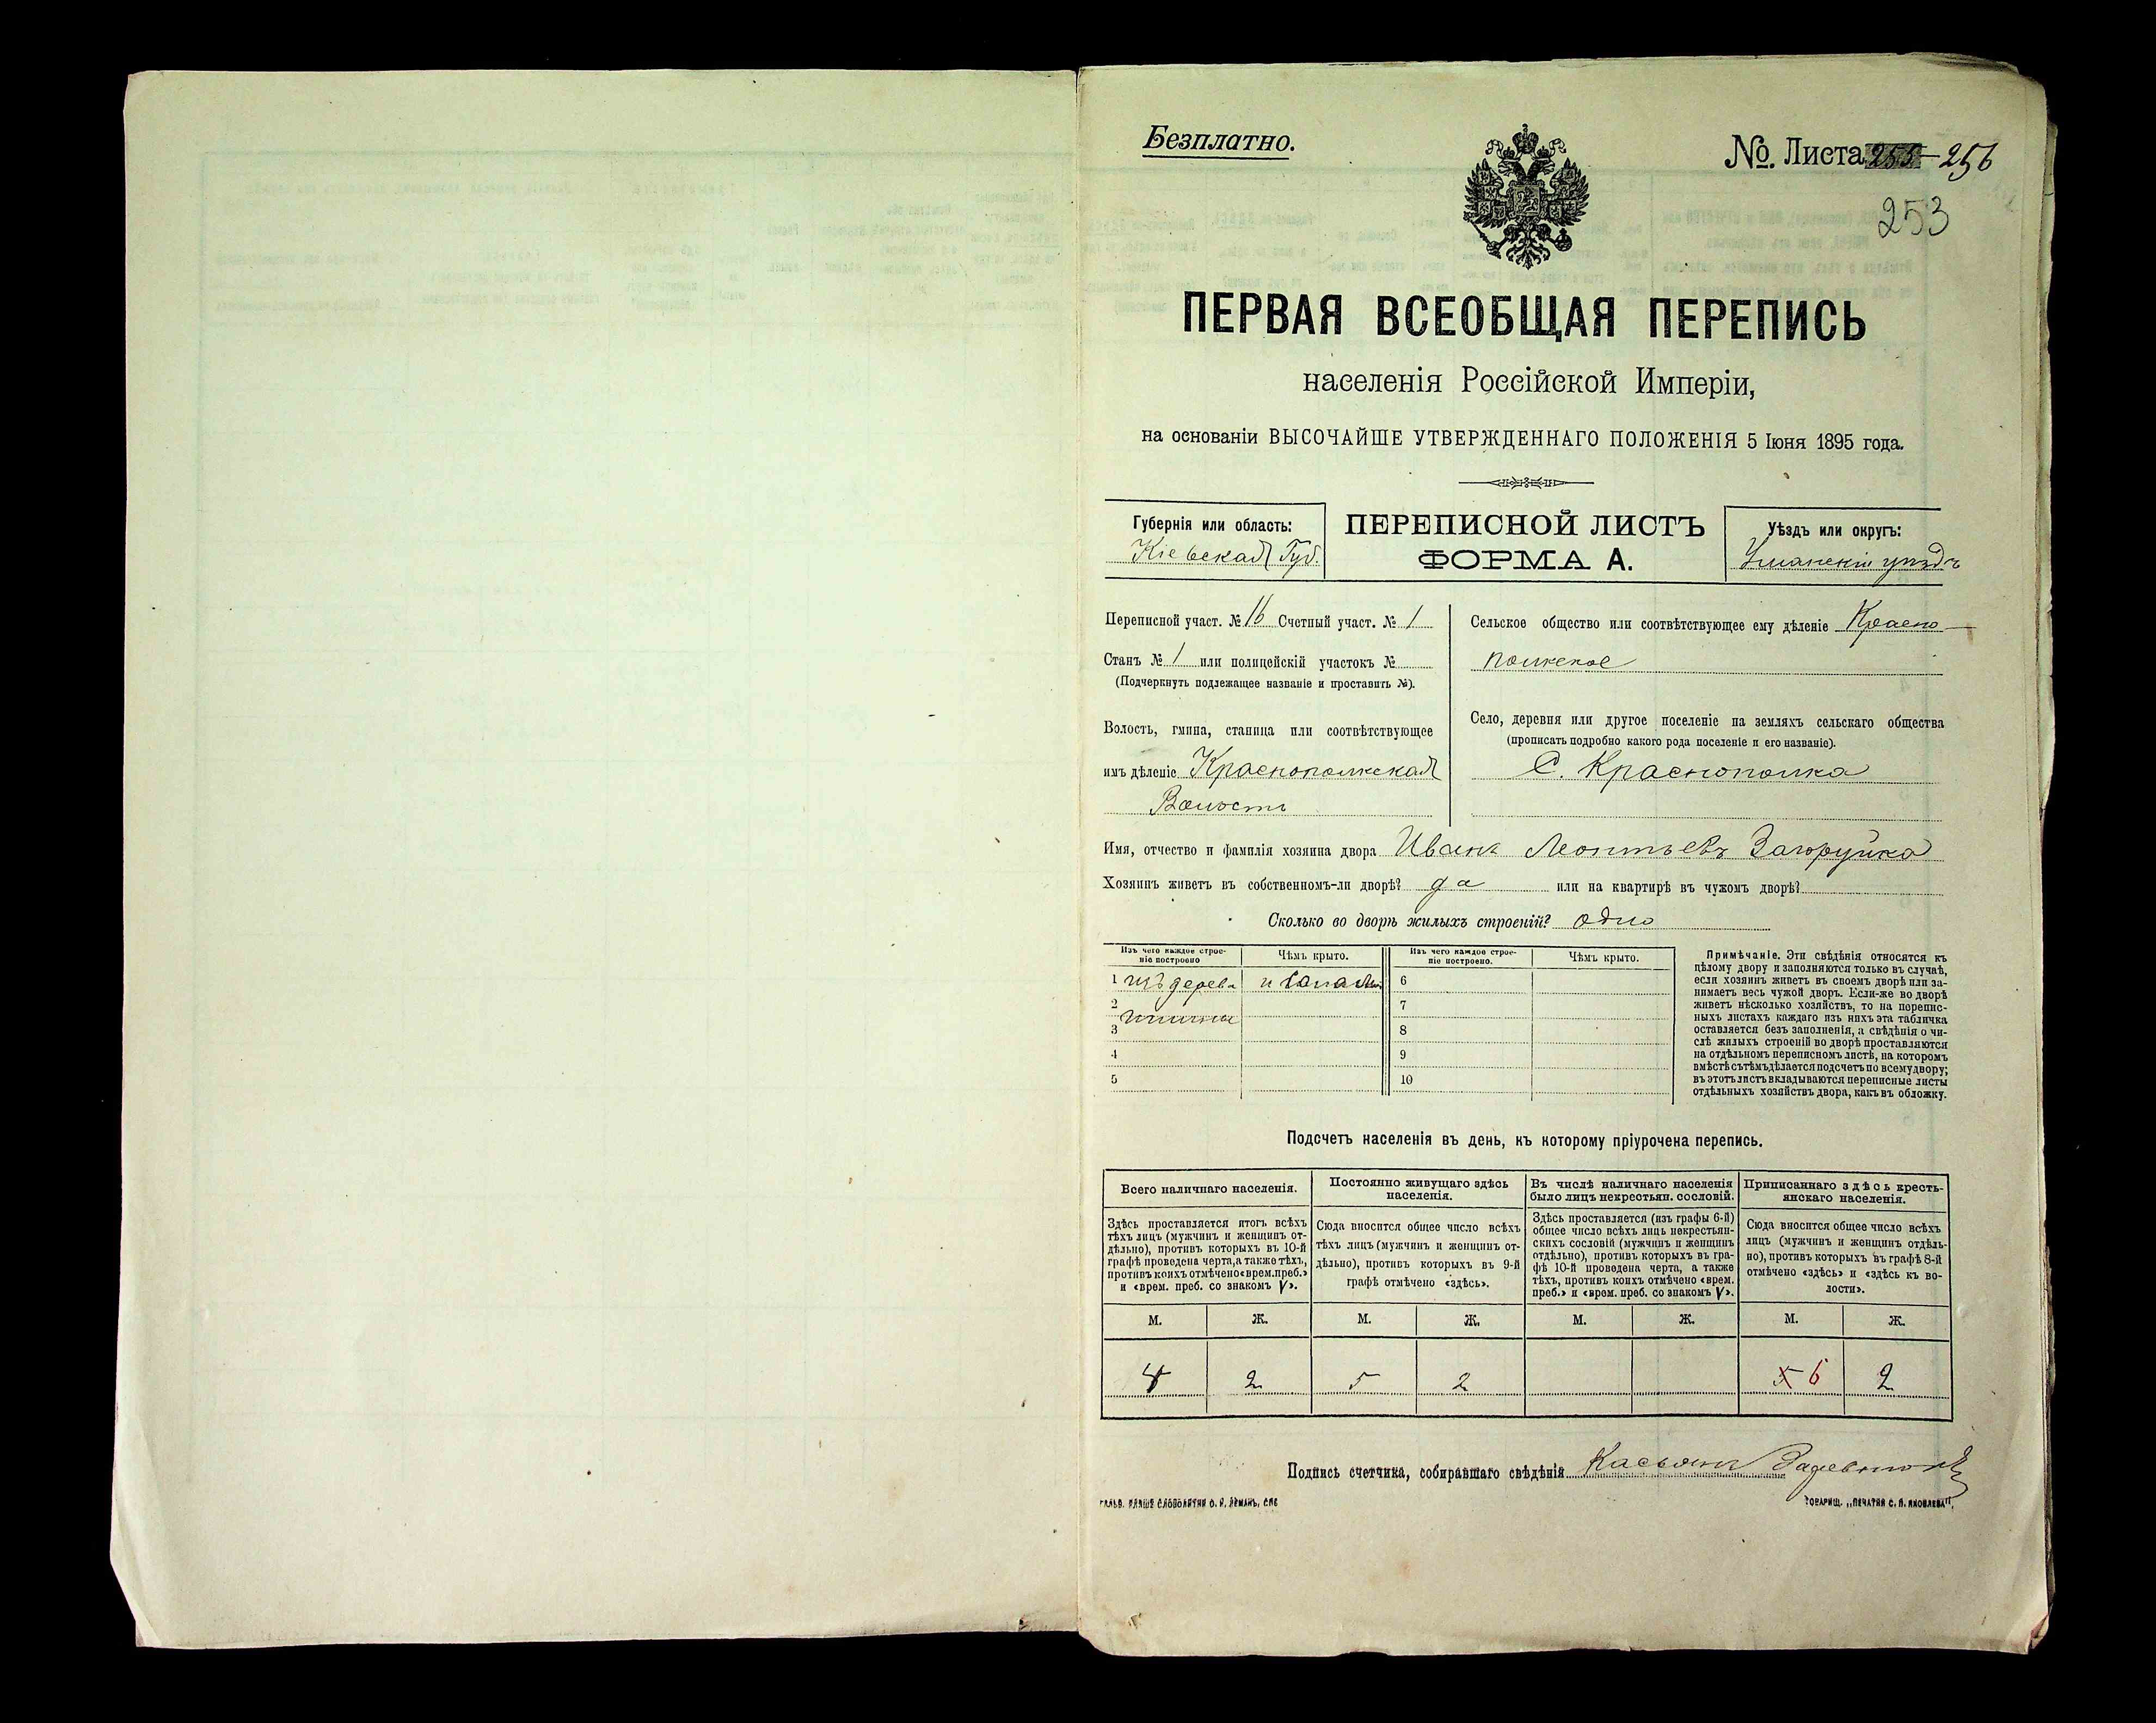 Безплатно.
№. Листа 255 – 256
253
ПЕРВАЯ ВСЕОБЩАЯ ПЕРЕПИСЬ
населенія Россійской Имперіи,
на основаніи ВЫСОЧАЙШЕ УТВЕРЖДЕННАГО ПОЛОЖЕНІЯ 5 Іюня 1895 года.
Губернія или область:
Кіевская Губ.
ПЕРЕПИСНОЙ ЛИСТЪ
ФОРМА А.
Уѣздъ или округъ:
Уманскій уѣздъ
Переписной участ. № 16 Счетный участ. № 1
Станъ № 1 или полицейскій участокъ №
(Подчеркнуть подлежащее названіе и проставить №).
Волость, гмина, станица или соотвѣтствующее
имъ дѣленіе Краснополкская
Волость
Сельское общество или соотвѣтствующее ему дѣленіе Красно-
полкское
Село, деревня или другое поселеніе на земляхъ сельскаго общества
(прописать подробно какого рода поселеніе и его названіе).
С. Краснополка
Имя, отчество и фамилія хозяина двора Иванъ Леонтьевъ Загоруйка
Хозяинъ живетъ въ собственномъ-ли дворѣ? да или на квартирѣ въ чужомъ дворѣ?
Сколько во дворѣ жилыхъ строеній? одно
Изъ чего каждое строе-
ніе построено
Чѣмъ крыто.
Изъ чего каждое строе-
ніе построено.
Чѣмъ крыто.
1 изъ дерева 6
2 7
3 8
4 9
5 10
Примѣчаніе. Эти свѣдѣнія относятся къ
цѣлому двору и заполняются только въ случаѣ,
если хозяинъ живетъ въ своемъ дворѣ или за-
нимаетъ весь чужой дворъ. Если-же во дворѣ
живетъ нѣсколько хозяйствъ, то на перепис-
ныхъ листахъ каждаго изъ нихъ эта табличка
оставляется безъ заполненія, а свѣдѣнія о чи-
слѣ жилыхъ строеній во дворѣ проставляются
на отдѣльномъ переписномъ листѣ, на которомъ
вмѣстѣ съ тѣмъ дѣлается подсчетъ по всему двору;
въ этотъ листъ вкладываются переписные листы
отдѣльныхъ хозяйствъ двора, какъ въ обложку.
Подсчетъ населенія въ день, къ которому пріурочена перепись.
Всего наличнаго населенія.
Здѣсь проставляется итогъ всѣхъ
тѣхъ лицъ (мужчинъ и женщинъ от-
дѣльно), противъ которыхъ въ 10-й
графѣ проведена черта, а также тѣхъ,
противъ коихъ отмѣчено «врем. преб.»
и «врем. преб. со знакомъ V».
Постоянно живущаго здѣсь
населенія.
Сюда вносится общее число всѣхъ
тѣхъ лицъ (мужчинъ и женщинъ от-
дѣльно), противъ которыхъ въ 9-й
графѣ отмѣчено «здѣсь».
Въ числѣ наличнаго населенія
было лицъ некрестьян. сословій.
Здѣсь проставляется (изъ графы 6-й)
общее число всѣхъ лицъ некрестьян-
скихъ сословій (мужчинъ и женщинъ
отдѣльно), противъ которыхъ въ гра-
фѣ 10-й проведена черта, а также
тѣхъ, противъ коихъ отмѣчено «врем.
преб.» и «врем. преб. со знакомъ V».
Приписаннаго здѣсь кресть-
янскаго населенія.
Сюда вносится общее число всѣхъ
лицъ (мужчинъ и женщинъ отдѣль-
но), противъ которыхъ въ графѣ 8-й
отмѣчено «здѣсь» и «здѣсь къ во-
лости».
М. Ж. М. Ж. М. Ж. М. Ж.
2 5 2 5 6 2
Подпись счетчика, собиравшаго свѣдѣнія Касьянъ
ТОВАРИЩ. „ПЕЧАТНЯ С. П. ЯКОВЛЕВА".